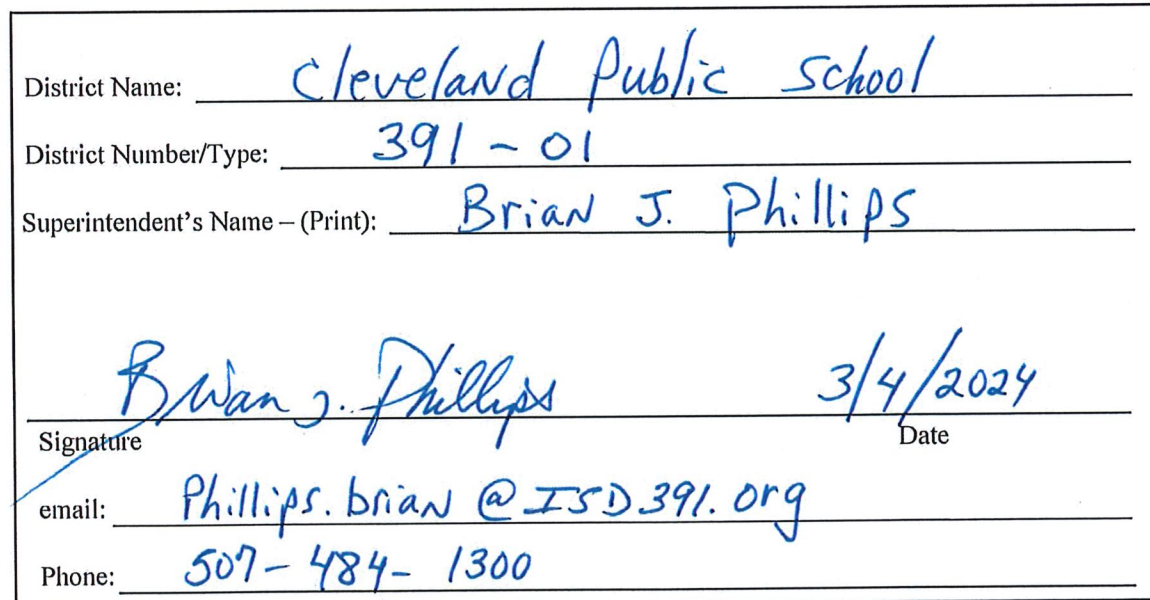 District Name: Cleveland Public School
District Number/Type: 391-01
Superintendent's Name – (Print): Brian J. Phillips
Brian J. Phillips 3/4/2024
Signature Date
email: Phillips.brian@ISD391.org
Phone: 507-484-1300